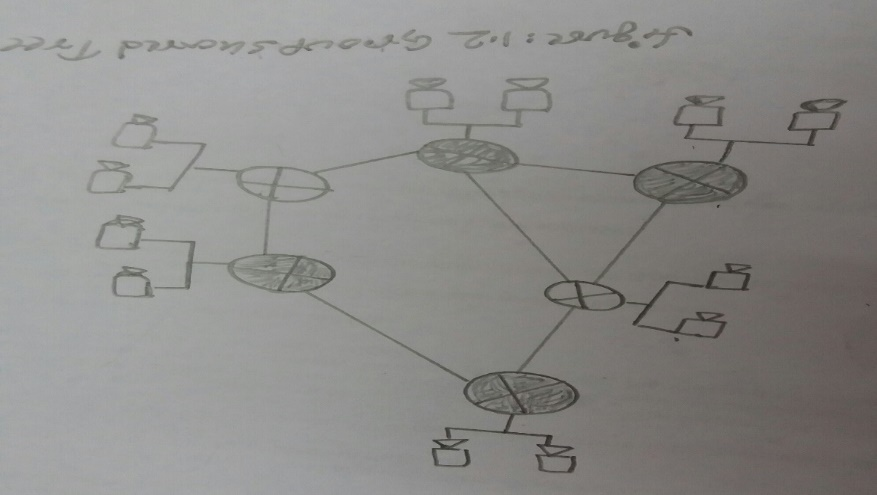 Figure: 1.2 Group Shared Tree